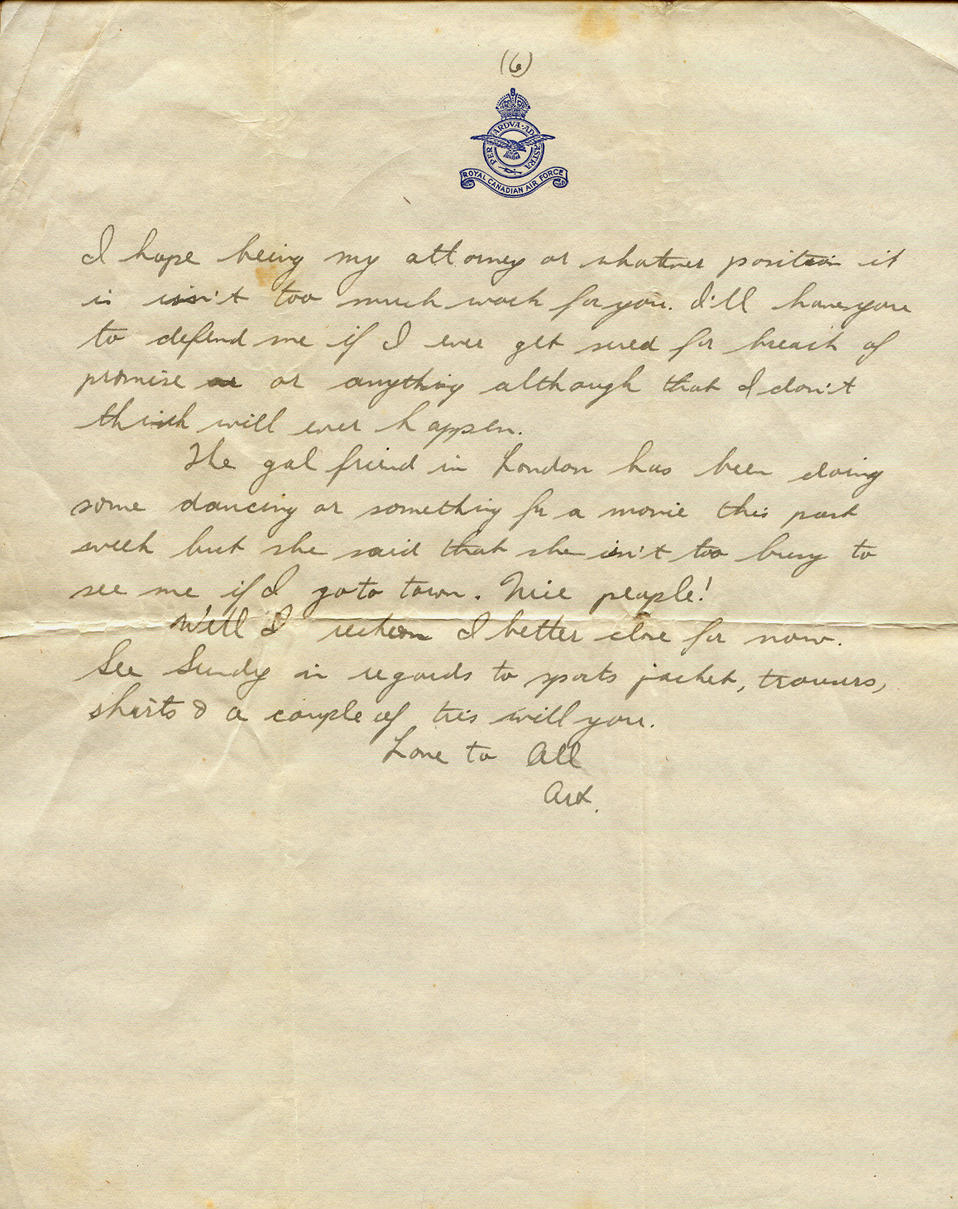 (6)
PER ARDVA AD ASTRA
ROYAL CANADIAN AIR FORCE
I hope being my attorney or whatever position it
is isn't too much work for you. I'll have you
to defend me if I ever get sued for breach of
promise or or anything although that I don't
think will ever happen.
The gal friend in London has been doing
some dancing or something for a movie this past
week but she said that she isn't too busy to
see me if I go to town. Nice people!
Well I reckon I better close for now.
See in regards to sports jacket, trousers,
shirts & a couple of ties will you.
Love to All
Art.